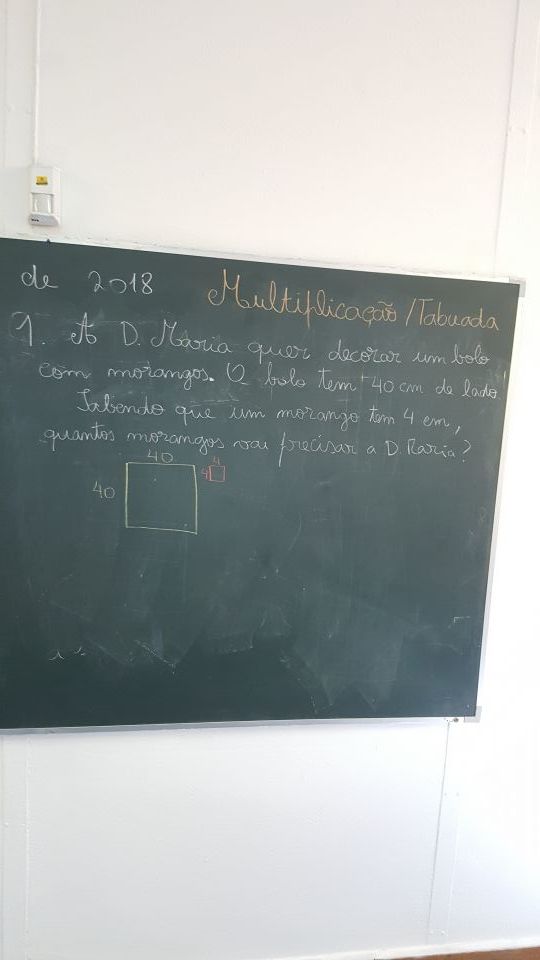 de 2018
Multiplicação / Tabuada
1. A D. Maria quer decorar um bolo
com morangos. O bolo tem 40 cm de lado
Sabendo que um morango tem 4 cm,
quantos morangos vai precisar a D. Maria?
40
4
40
4